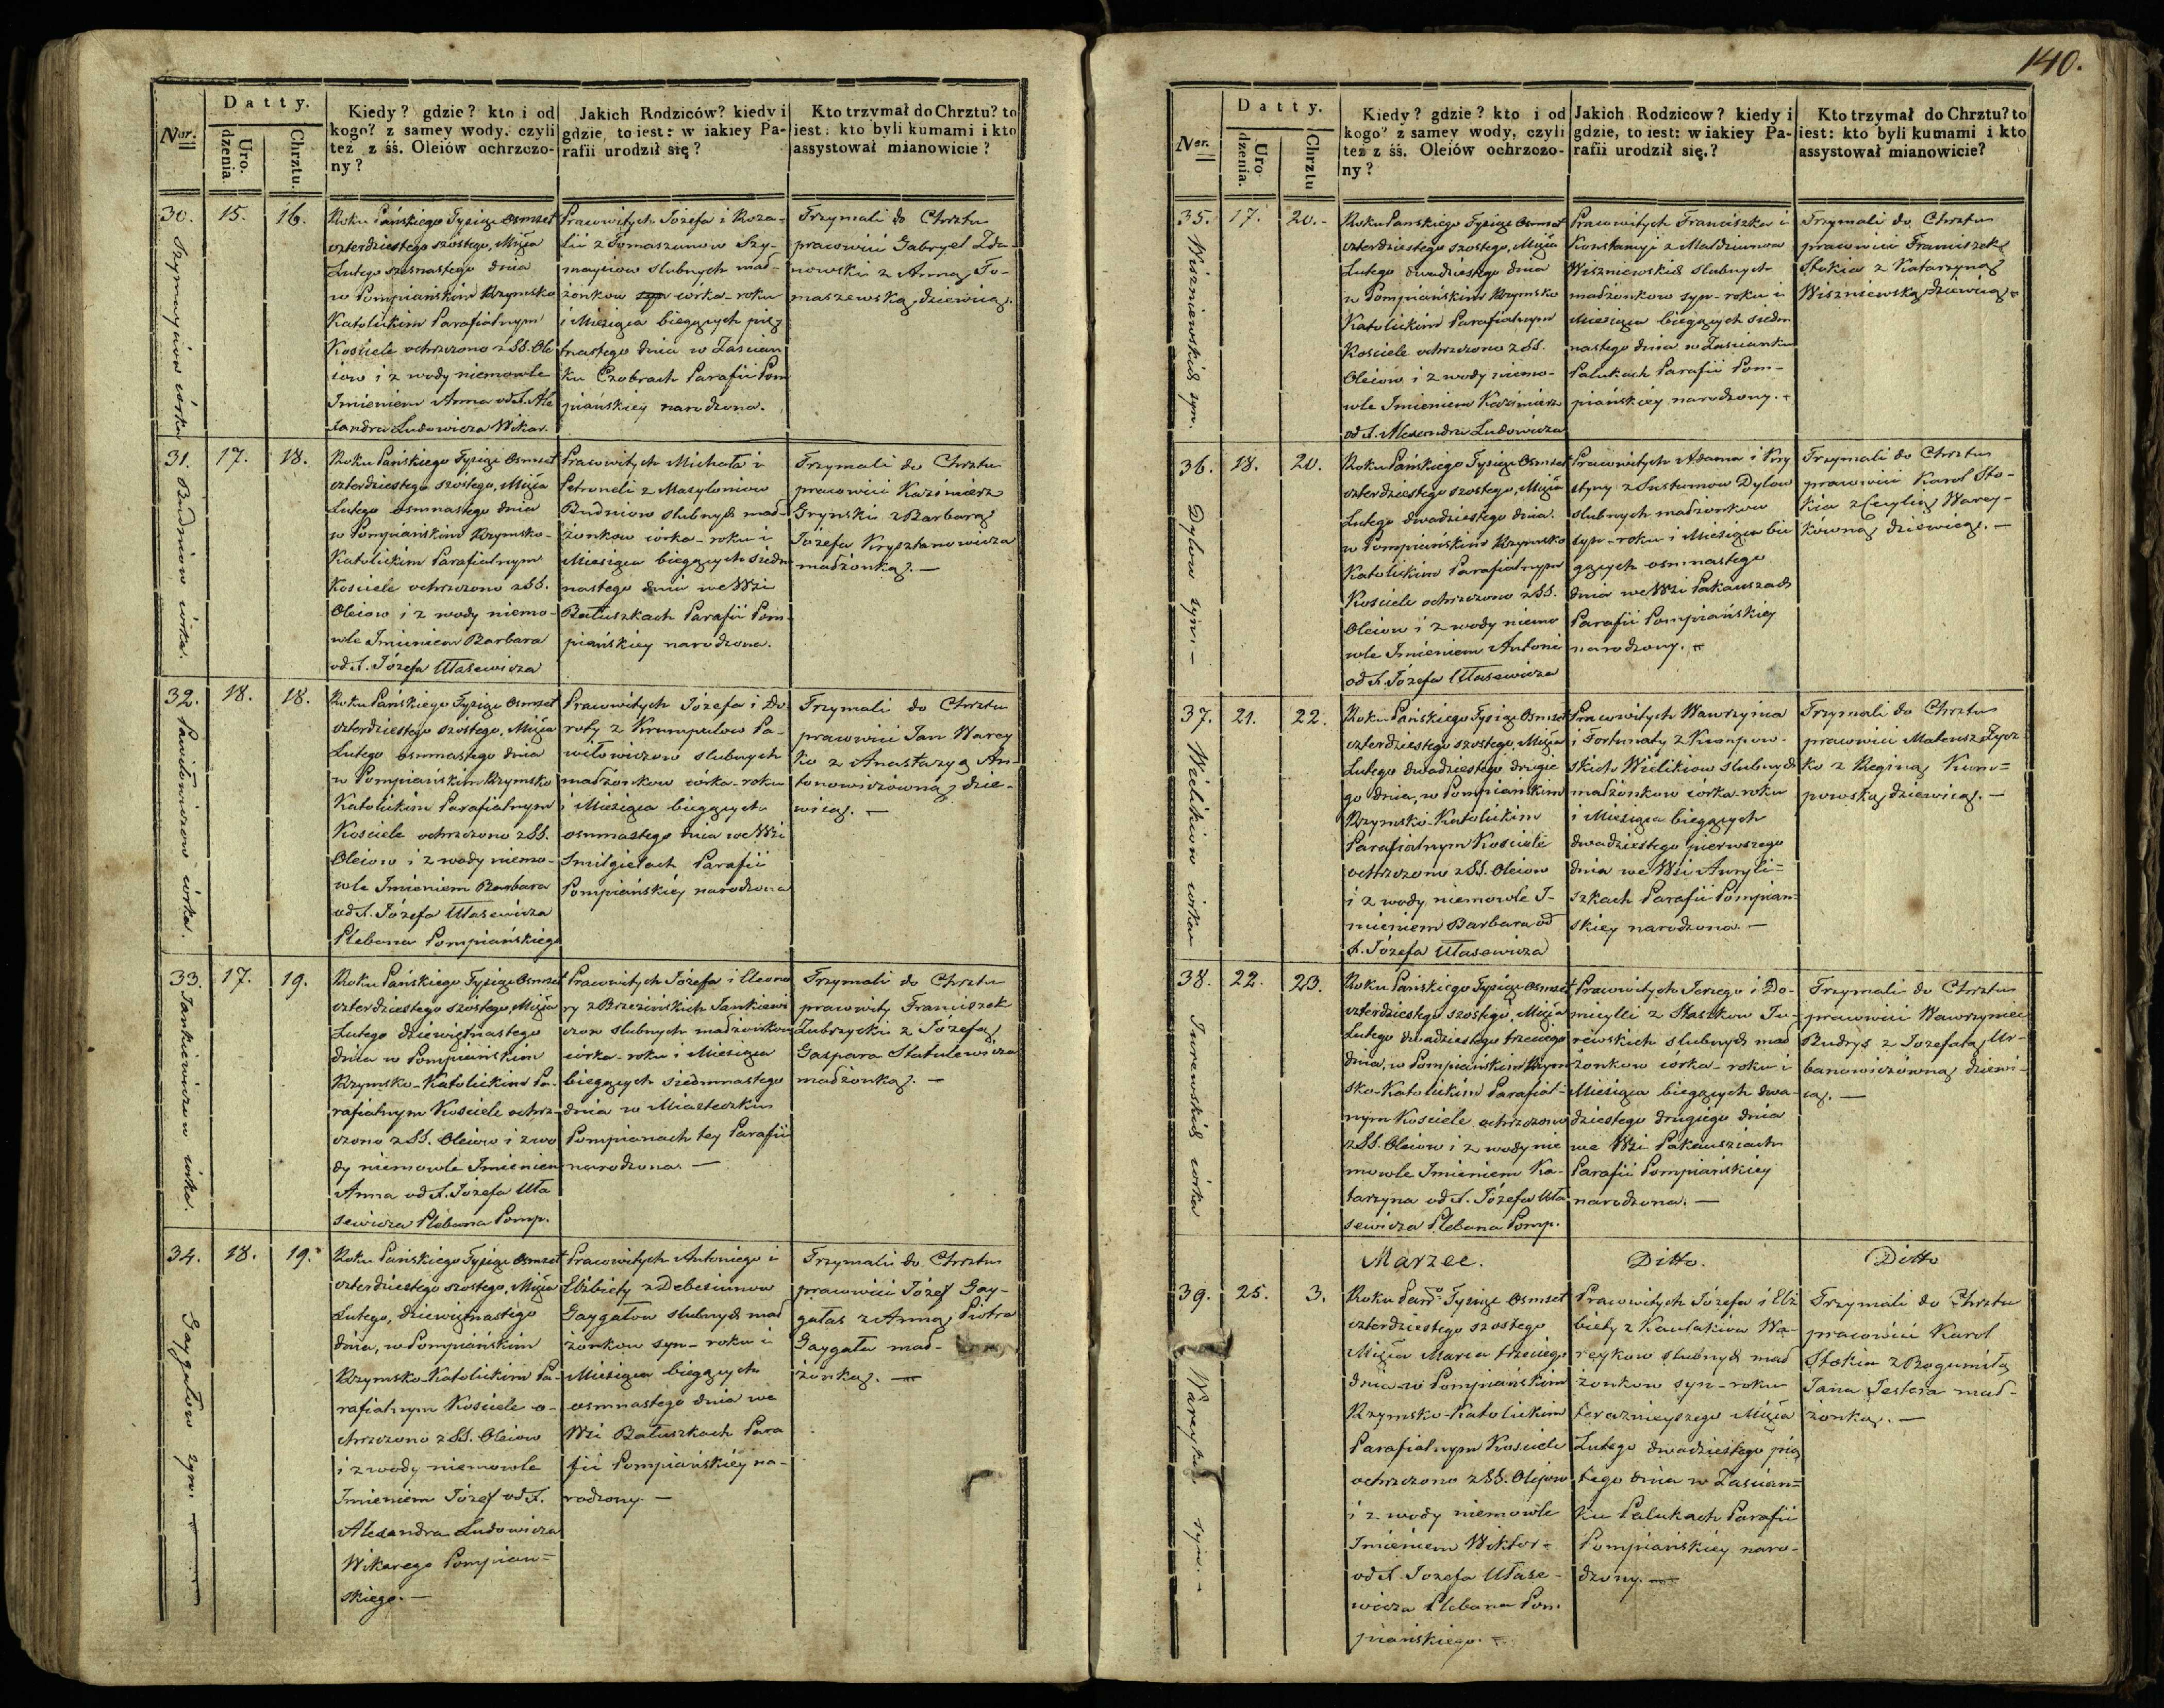 Ner.
Datty.
Uro.
dzenia.
Chrztu.
Kiedy? gdzie? kto i od
kogo? z samey wody, czyli
też z śś. Oleiów ochrzczo-
ny?
Jakich Rodziców? kiedy i
gdzie, to iest: w iakiey Pa-
rafii urodził się?
Kto trzymał do Chrztu? to
iest: kto byli kumami i kto
assystował mianowicie?
30. 15. 16.
Szymayciow córka
Roku Pańskiego Tysiąc Osmset
czterdziestego szóstego, Msca
Lutego szesnastego dnia
w Pompiańskim Rzymsko
Katolickim Parafialnym
Kościele ochrzczono z SS. Ole
iow i z wody niemowle
Imieniem Anna od X. Ale
xandra Ludowicza Wikar.
Pracowitych Józefa i Roza-
lii z Tomaszunow Szy-
mayciow slubnych mał-
żonkow córka - roku
i Miesiąca biegących pię
tnastego dnia w Zascian
ku Czobrach Parafii Pom
piańskiey narodzona.
Trzymali do Chrztu
pracowici Gabryel Zda-
nowski z Anną To-
maszewską dziewicą.
31. 17. 18.
Budniow córka.
Roku Pańskiego Tysiąc Osmset
czterdziestego szóstego, Msca
Lutego osmnastego dnia
w Pompiańskim Rzymsko-
Katolickim Parafialnym
Kościele ochrzczono z SS.
Oleiow i z wody niemo-
wle Imieniem Barbara
od X. Józefa Ułasewicza
Pracowitych Michała i
Petroneli z Masyloniow
Budniow slubnych mał-
żonkow córka - roku i
Miesiąca biegących siedm
nastego dnia we Wsi
Bałuszkach Parafii Pom-
piańskiey narodzona.
Trzymali do Chrztu
pracowici Kaźimierz
Grynski z Barbarą
Józefa Krysztanowicza
małżonką. —
32. 18. 18.
Pawiłowiczow córka.
Roku Pańskiego Tysiąc Osmset
czterdziestego szóstego, Msca
Lutego osmnastego dnia
w Pompiańskim Rzymsko
Katolickim Parafialnym
Kościele ochrzczono z SS.
Oleiow i z wody niemo-
wle Imieniem Barbara
od X. Józefa Ułasewicza
Plebana Pompiańskiego
Pracowitych Józefa i Do
roty z Krumpulow Pa-
wiłowiczow slubnych
małżonkow córka - roku
i Miesiąca biegących
osmnastego dnia we Wsi
Smilgielach Parafii
Pompiańskiey narodzona
Trzymali do Chrztu
pracowici Jan Warey
ko z Anastazyą An-
tonowiczówną dzie-
wicą. —
33. 17. 19.
Jankiewiczow córka.
Roku Pańskiego Tysiąc Osmset
czterdziestego szóstego, Msca
Lutego dziewiętnastego
dnia w Pompiańskim
Rzymsko-Katolickim Pa-
rafialnym Kościele ochrz-
czono z SS. Oleiow i z wo
dy niemowle Imieniem
Anna od X. Józefa Uła
sewicza Plebana Pomp.
Pracowitych Józefa i Eleono
ry z Brzezińskich Jankiewi
czow slubnych małżonkow
córka - roku i Miesiąca
biegących siedmnastego
dnia w Miasteczku
Pompianach tey Parafii
narodzona. —
Trzymali do Chrztu
pracowity Franciszek
Zubrzycki z Józefą
Gaspara Statulewicza
małżonką. —
34. 18. 19.
Gaygałow syn. —
Roku Pańskiego Tysiąc Osmset
czterdziestego szóstego, Msca
Lutego, dziewiętnastego
dnia, w Pompiańskim
Rzymsko-Katolickim Pa-
rafialnym Kościele o-
chrzczono z SS. Oleiow
i z wody niemowle
Imieniem Józef od X.
Alexandra Ludowicza
Wikarego Pompian=
skiego. —
Pracowitych Antoniego i
Elżbiety z Debesiunow
Gaygałow slubnych mał
żonkow syn - roku i
Miesiąca biegących
osmnastego dnia we
Wsi Bałuszkach Para
fii Pompiańskiey na-
rodzony. —
Trzymali do Chrztu
pracowici Józef Gay-
gałas z Anną Piotra
Gaygała mał-
żonką. —
140.
Ner.
Datty.
Uro
dzenia.
Chrztu
Kiedy? gdzie? kto i od
kogo? z samey wody, czyli
też z śś. Oleiów ochrzczo-
ny?
Jakich Rodzicow? kiedy i
gdzie, to iest: w iakiey Pa-
rafii urodził się.?
Kto trzymał do Chrztu? to
iest: kto byli kumami i kto
assystował mianowicie?
35. 17. 20.
Wiszniewskich syn.
Roku Panskiego Tysiąc Osmset
czterdziestego szostego, Msca
Lutego dwudziestego dnia
w Pompiańskim Rzymsko
Katolickim Parafialnym
Kościele ochrzczono z SS.
Oleiow i z wody niemo-
wle Imieniem Kaźimierz
od X. Alexandra Ludowicza
Pracowitych Franciszka i
Konstancyi z Małdziunow
Wiszniewskich slubnych
małżonkow syn - roku i
Miesiąca biegących siedm
nastego dnia w Zascianku
Palukach Parafii Pom-
piańskiey narodzony.
Trzymali do Chrztu
pracowici Franciszek
Stokia z Katarzyną
Wiszniewską dziewicą
36. 18. 20.
Dylow syn. —
Roku Pańskiego Tysiąc Osmset
czterdziestego szostego, Msca
Lutego dwudziestego dnia
w Pompiańskim Rzymsko
Katolickim Parafialnym
Kościele ochrzczono z SS.
Oleiow i z wody niemo
wle Imieniem Antoni
od X. Józefa Ułasewicza
Pracowitych Adama i Kry
styny z Szusturnow Dylow
slubnych małżonkow
syn - roku i Miesiąca bie
gących osmnastego
dnia we Wsi Pakauszach
Parafii Pompiańskiey
narodzony.
Trzymali do Chrztu
pracowici Karol Sto-
kia z Cecylią Warey-
kówną dziewicą. —
37. 21. 22.
Wielikiow córka
Roku Pańskiego Tysiąc Osmset
czterdziestego szostego, Msca
Lutego dwudziestego drugie
go dnia, w Pompiańskim
Rzymsko-Katolickim
Parafialnym Kościele
ochrzczono z SS. Oleiow
i z wody niemowle I-
mieniem Barbara od
X. Józefa Ułasewicza
Pracowitych Wawrzyńca
i Fortunaty z Kumpow-
skich Wielikiow slubnych
małżonkow córka - roku
i Miesiąca biegących
dwudziestego pierwszego
dnia we Wsi Auryli=
szkach Parafii Pompian=
skiey narodzona. —
Trzymali do Chrztu
pracowici Mateusz Zycz
ko z Reginą Kum=
powską dziewicą. —
38. 22. 23.
Jurewskich córka
Roku Pańskiego Tysiąc Osmset
czterdziestego szostego, Msca
Lutego dwudziestego trzeciego
dnia, w Pompiańskim Rzym
sko-Katolickim Parafial-
nym Kościele ochrzczono
z SS. Oleiow i z wody nie
mowle Imieniem Ka-
tarzyna od X. Józefa Uła
sewicza Plebana Pomp.
Pracowitych Jerzego i Do-
micylli z Staszkow Ju-
rewskich slubnych mał
żonkow córka - roku i
Miesiąca biegących dwu-
dziestego drugiego dnia
we Wsi Pakauszach
Parafii Pompiańskiey
narodzona. —
Trzymali do Chrztu
pracowici Wawrzyniec
Budrys z Jozefatą Ur-
banowiczówną dziewi-
cą. —
Marzec. Ditto. Ditto
39. 25. 3.
Wareykow syn. —
Roku Pańo Tysiąc Osmset
czterdziestego szostego
Msca Marca trzeciego
dnia w Pompiańskim
Rzymsko-Katolickim
Parafialnym Kościele
ochrzczono z SS. Olejow
i z wody niemowle
Imieniem Wiktor
od X. Jozefa Ułase-
wicza Plebana Pom
piańskiego.
Pracowitych Józefa i Elż
biety z Kaulakiow Wa-
reykow slubnych mał
żonkow syn - roku
teraznieyszego Msca
Lutego dwudziestego pią
tego dnia w Zascian=
ku Palukach Parafii
Pompiańskiey naro-
dzony. —
Trzymali do Chrztu
pracowici Karol
Stokia z Bogumiłą
Jana Testera mał-
żonką. —